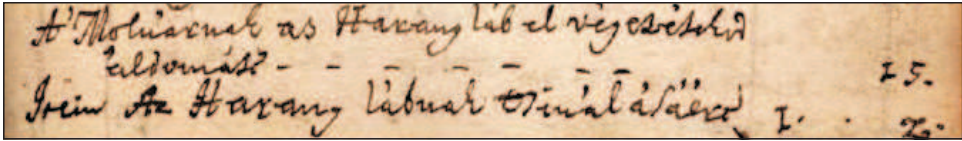 A' Molnárnak as Harang láb el végezésekor
áldomást - - - - - - - 15.
Item Az Harang lábnak Csinálásáért 1. .